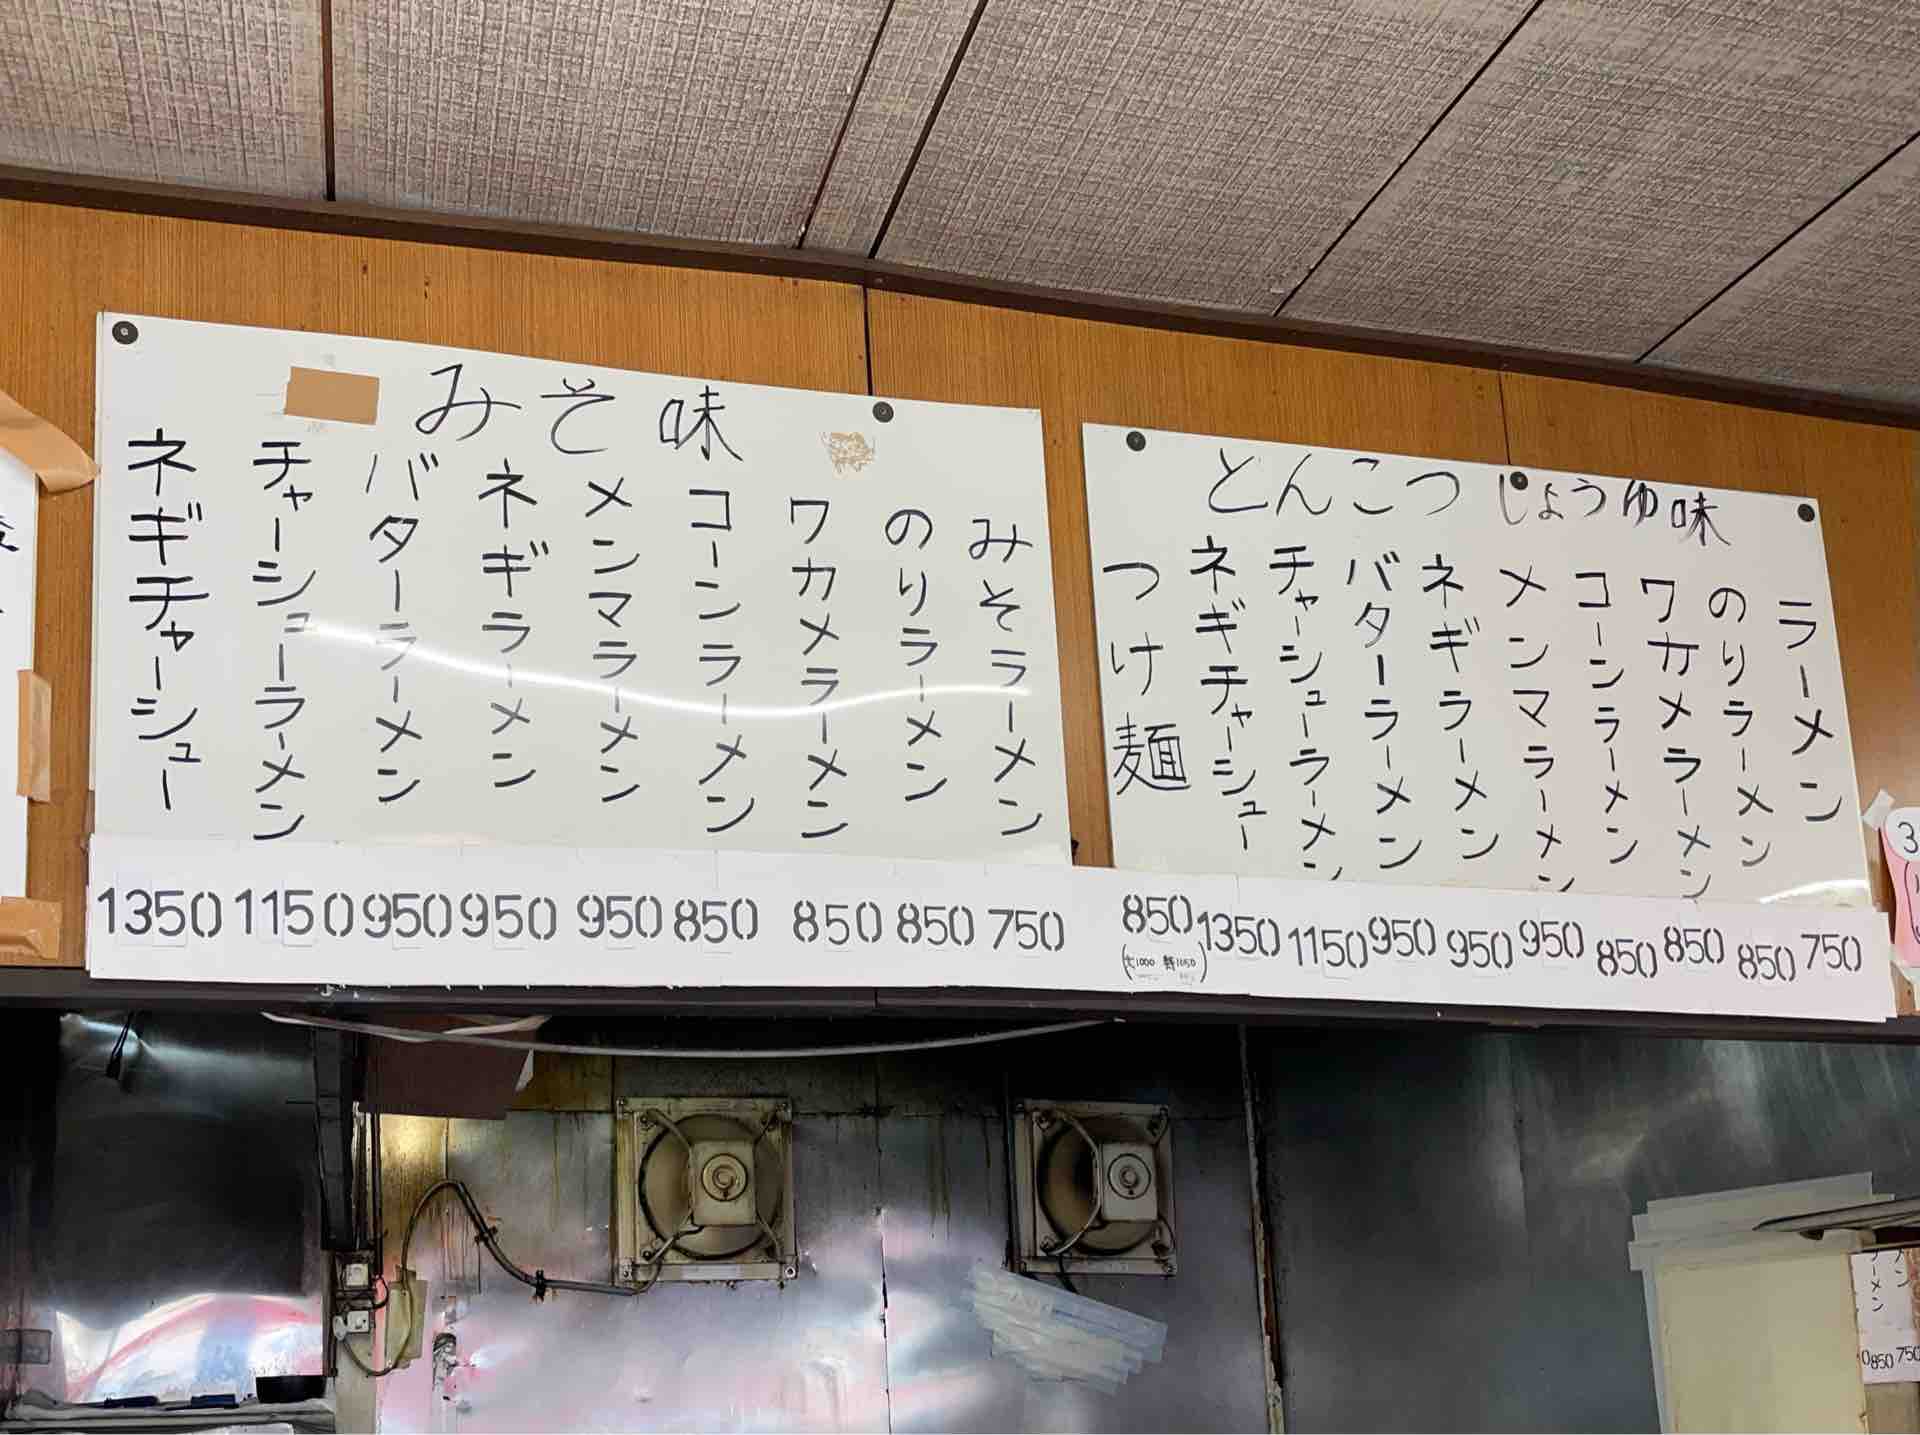 とんこつ じょうゆ味
ラーメン
のりラーメン
ワカメラーメン
コーンラーメン
メンマラーメン
ネギラーメン
バターラーメン
チャーシューラーメン
ネギチャーシュー
つけ麺
850 1350 1150 950 950 950 850 850 850 750
(大1000 特1050)
みそ味
みそラーメン
のりラーメン
ワカメラーメン
コーンラーメン
メンマラーメン
ネギラーメン
バターラーメン
チャーシューラーメン
ネギチャーシュー
1350 1150 950 950 950 850 850 850 750
3
ーメン
850 750